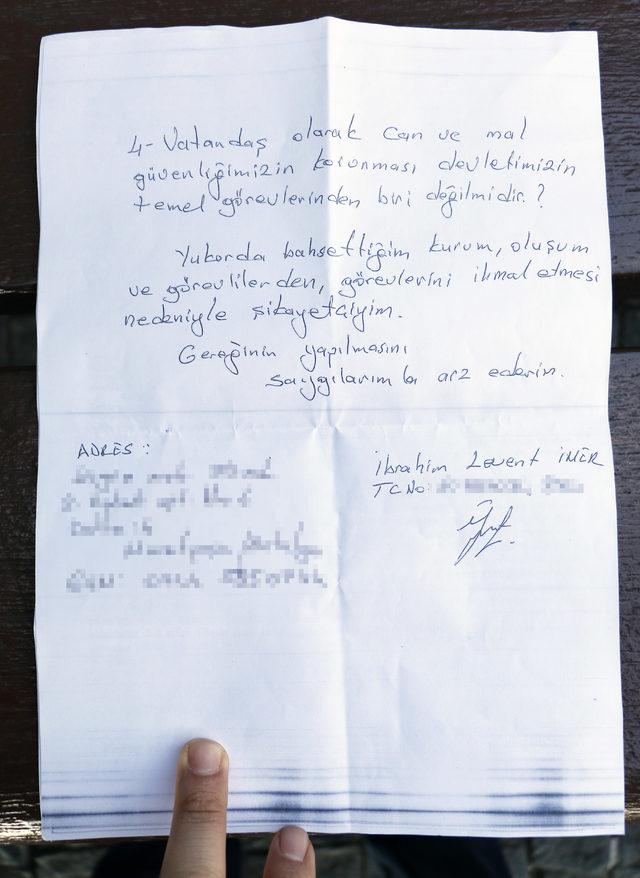 4- Vatandaş olarak can ve mal
güvenliğimizin korunması devletimizin
temel görevlerinden biri değilmidir.?
Yukarda bahsettiğim kurum, oluşum
ve görevlilerden, görevlerini ihmal etmesi
nedeniyle şikayetçiyim.
Gereğinin yapılmasını
saygılarımla arz ederim.
ADRES :
İbrahim Levent İNER
TC No: